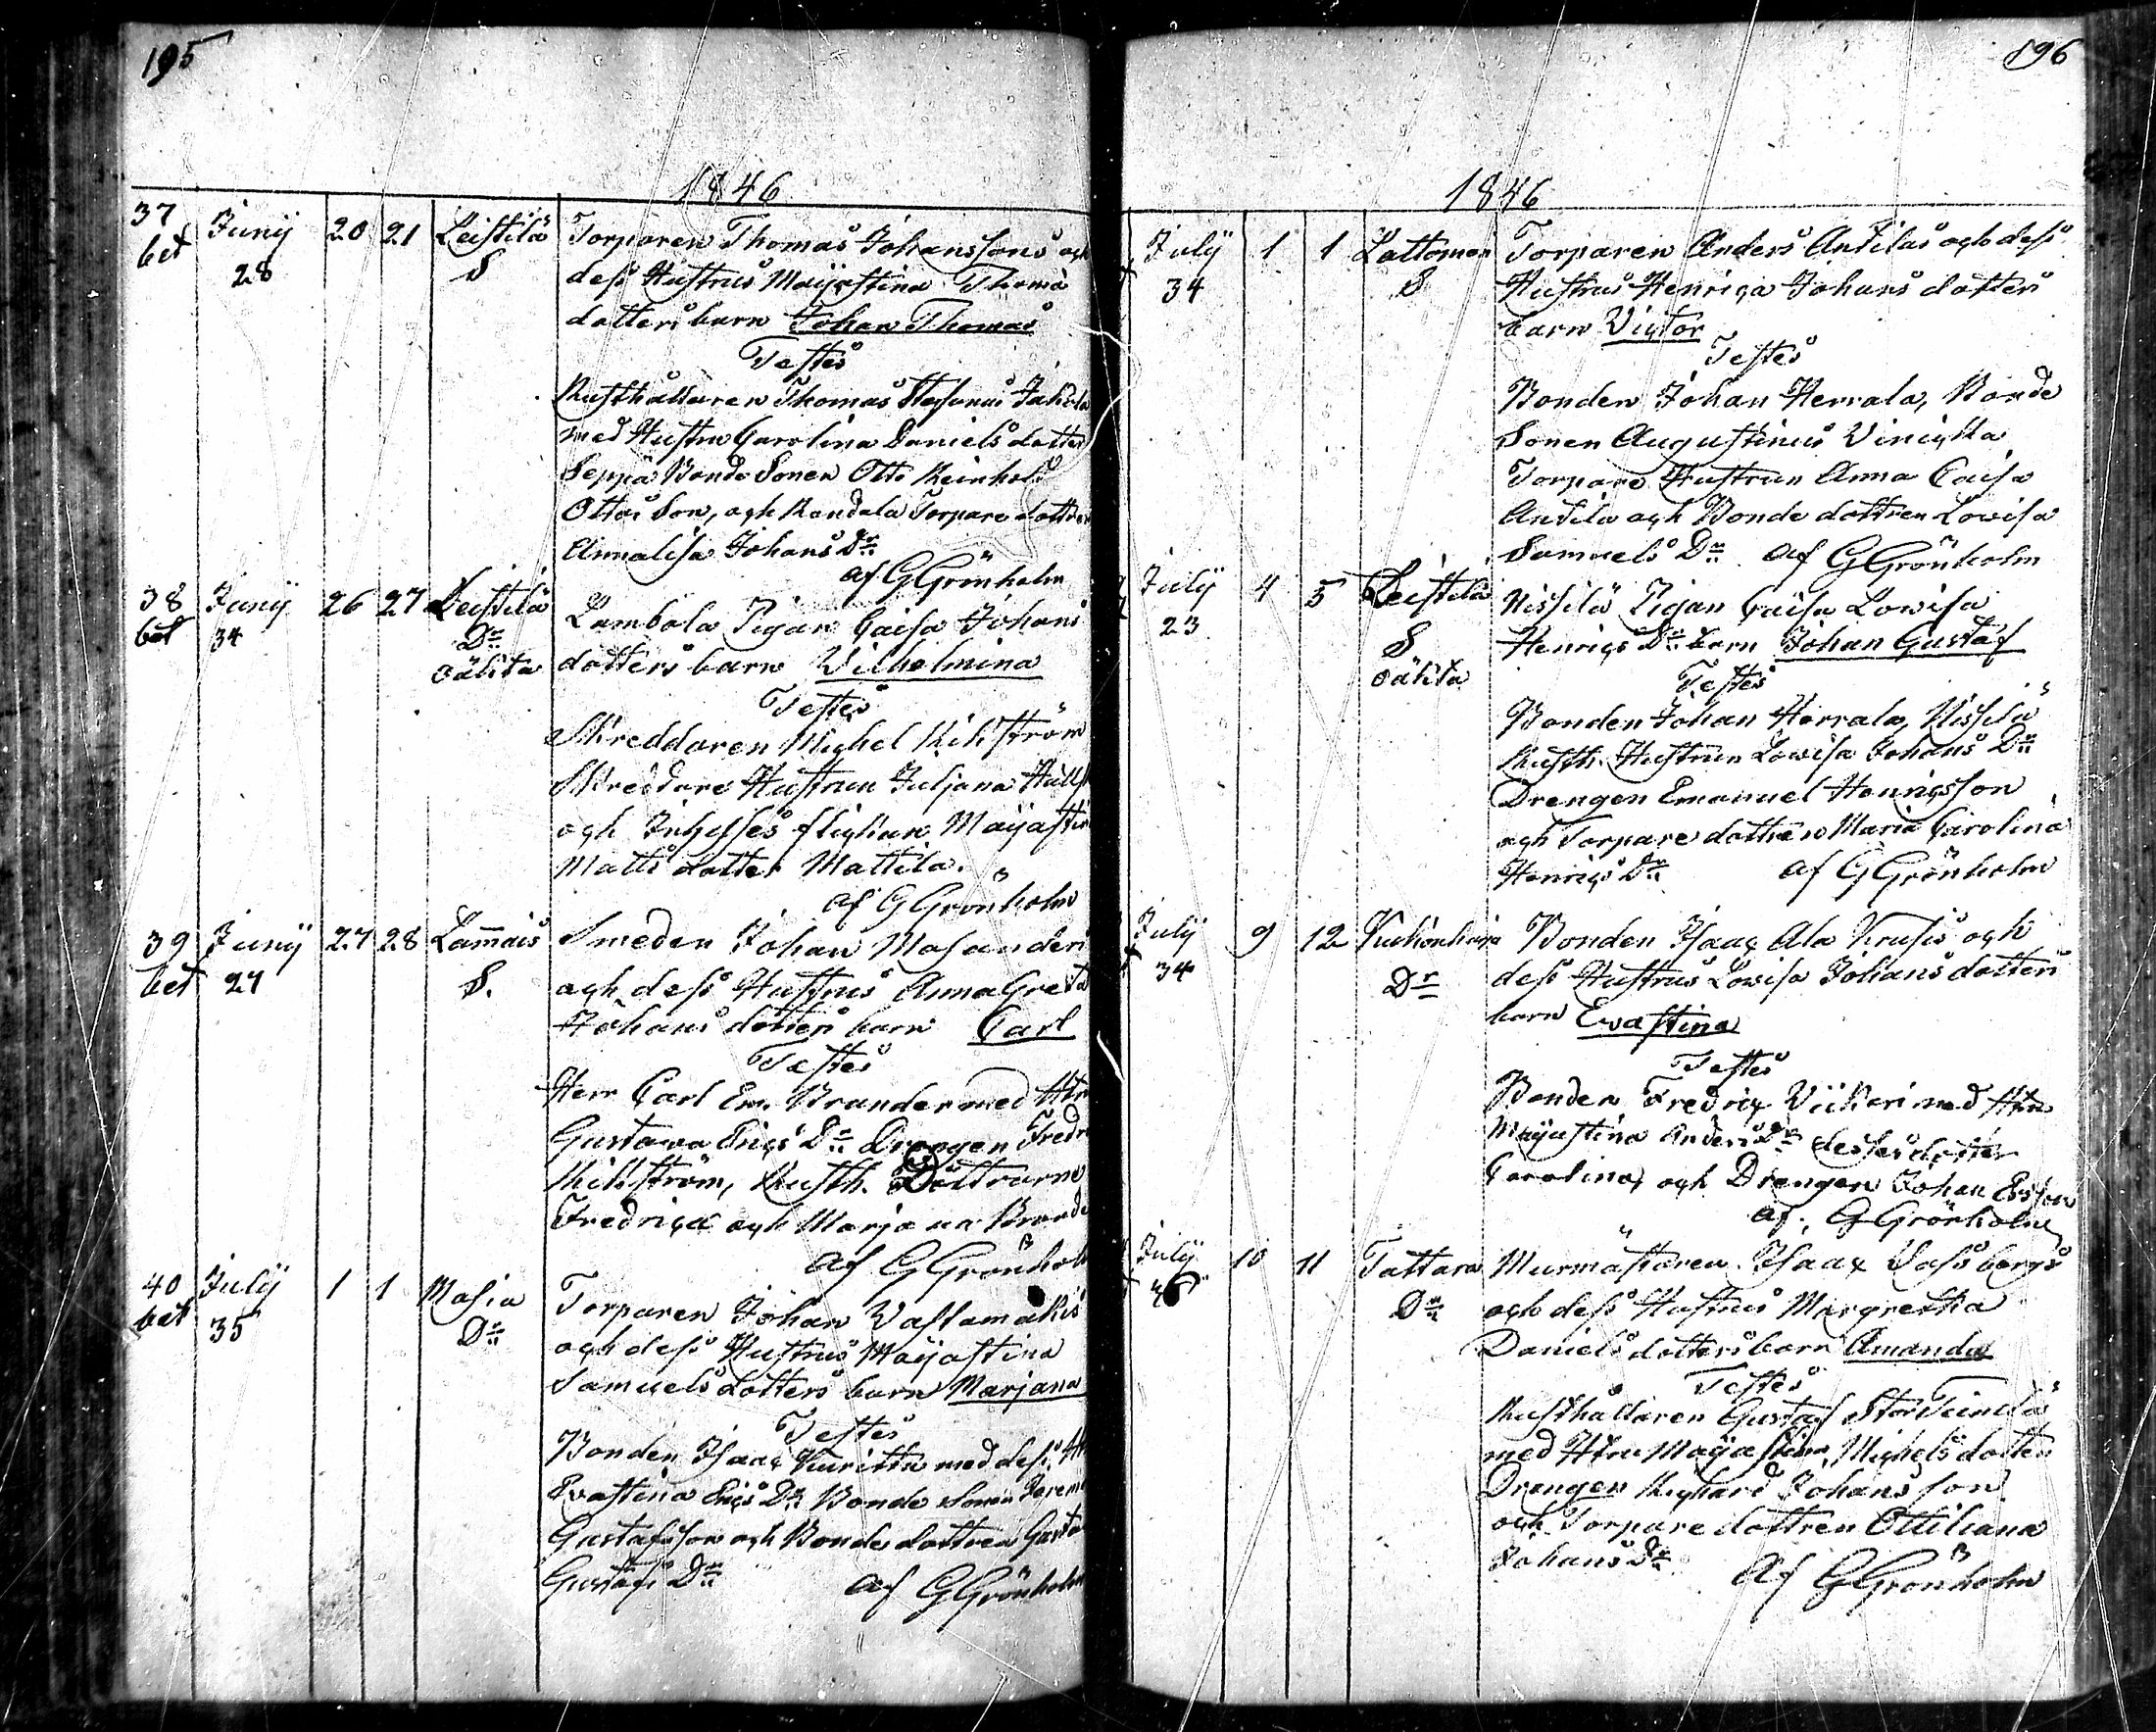 195
1846
37 Junij 20 21 Leistilä Torparen Thomas Johanssons och
bet 28 S dess Hustrus Maijastina Thomæ
dotters barn Johan Thomas
Testes
Rusthållaren Thomas Stefanus Jaköla
med Hustru Carolina Daniels dotter
Seppä Bonde Sonen Otto Reinhold
Ottos Son, och Randala Torpare dottren
Annalisa Johans Dr
af G Grönholm
38 Junij 26 27 Leistilä Lambola Pigan Caisa Johans
bet 34 Dr oäkta dotters barn Wilhelmina
Testes
Skreddaren Michel Kihlström
Skreddare Hustrun Juljana
och Inhyses flickan Maijastin
Matts dotter Mattila.
af G Grönholm
39 Junij 27 28 Lammais Smeden Johan Masanders
bet 27 S. och dess Hustrus Anna Greta
Johans dotters barn Carl
Testes
Herr Carl Em. Brander med Htr
Gustava Erics Dr Drengen Fredr
Kihlström, Rusth. Döttrarne
Fredrica och Marjana Brande
af G Grönhol
40 July 1 1 Masia Torparen Johan Vastamäkis
bet 35 Dr och dess Hustrus Maijastina
Samuels dotters barn Marjana
Testes
Bonden Isaac Kuurittu med dess H
Evastina Erics Dr Bonde Sonen Jerem
Gustafsson och Bonde dottren Gusta
Gustafs Dr af G Grönholm
196
1846
July 1 1 Lattomeri Torparen Anders Antilas och dess
34 S Hustrus Henrica Johans dotters
barn Victor
Testes
Bonden Johan Herrala, Bonde
Sonen Augustinus Vinikka
Torpare Hustrun Anna Caisa
Antila och Bonde dottren Lovisa
Samuels Dr af G Grönholm
July 4 5 Leistilä Nissilä Pigan Caisa Lovisa
23 S oäkta Henrics Dr barn Johan Gustaf
Testes
Bonden Johan Herrala, Nissilä
Rusth. Hustrun Lovisa Johans Dr
Drengen Emanuel Henricsson
och Torpare dottren Maria Carolina
Henrics Dr af G Grönholm
July 9 12 Bonden Isaac Ala Krusis och
34 Dr dess Hustrus Lovisa Johans dotters
barn Evastina
Testes
Bonden Fredric Viikeri med Htru
Maijastina Anders Dr desses dotter
Carolina, och Drengen Johan Ersson
af G Grönholm
July 10 11 Tattara Murmästaren Isaac Vassbergs
Dr och dess Hustrus Margretha
Daniels dotters barn Amanda
Testes
Rusthållaren Gustaf StorTeinilä
med Htru Maijastina Michels dotter
Drengen Richard Johansson
och Torpare dottren Ottiliana
Johans Dr af G Grönholm